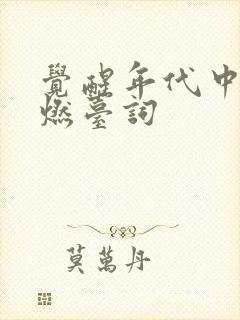 覺醒年代中
燃臺詞
莫萬丹